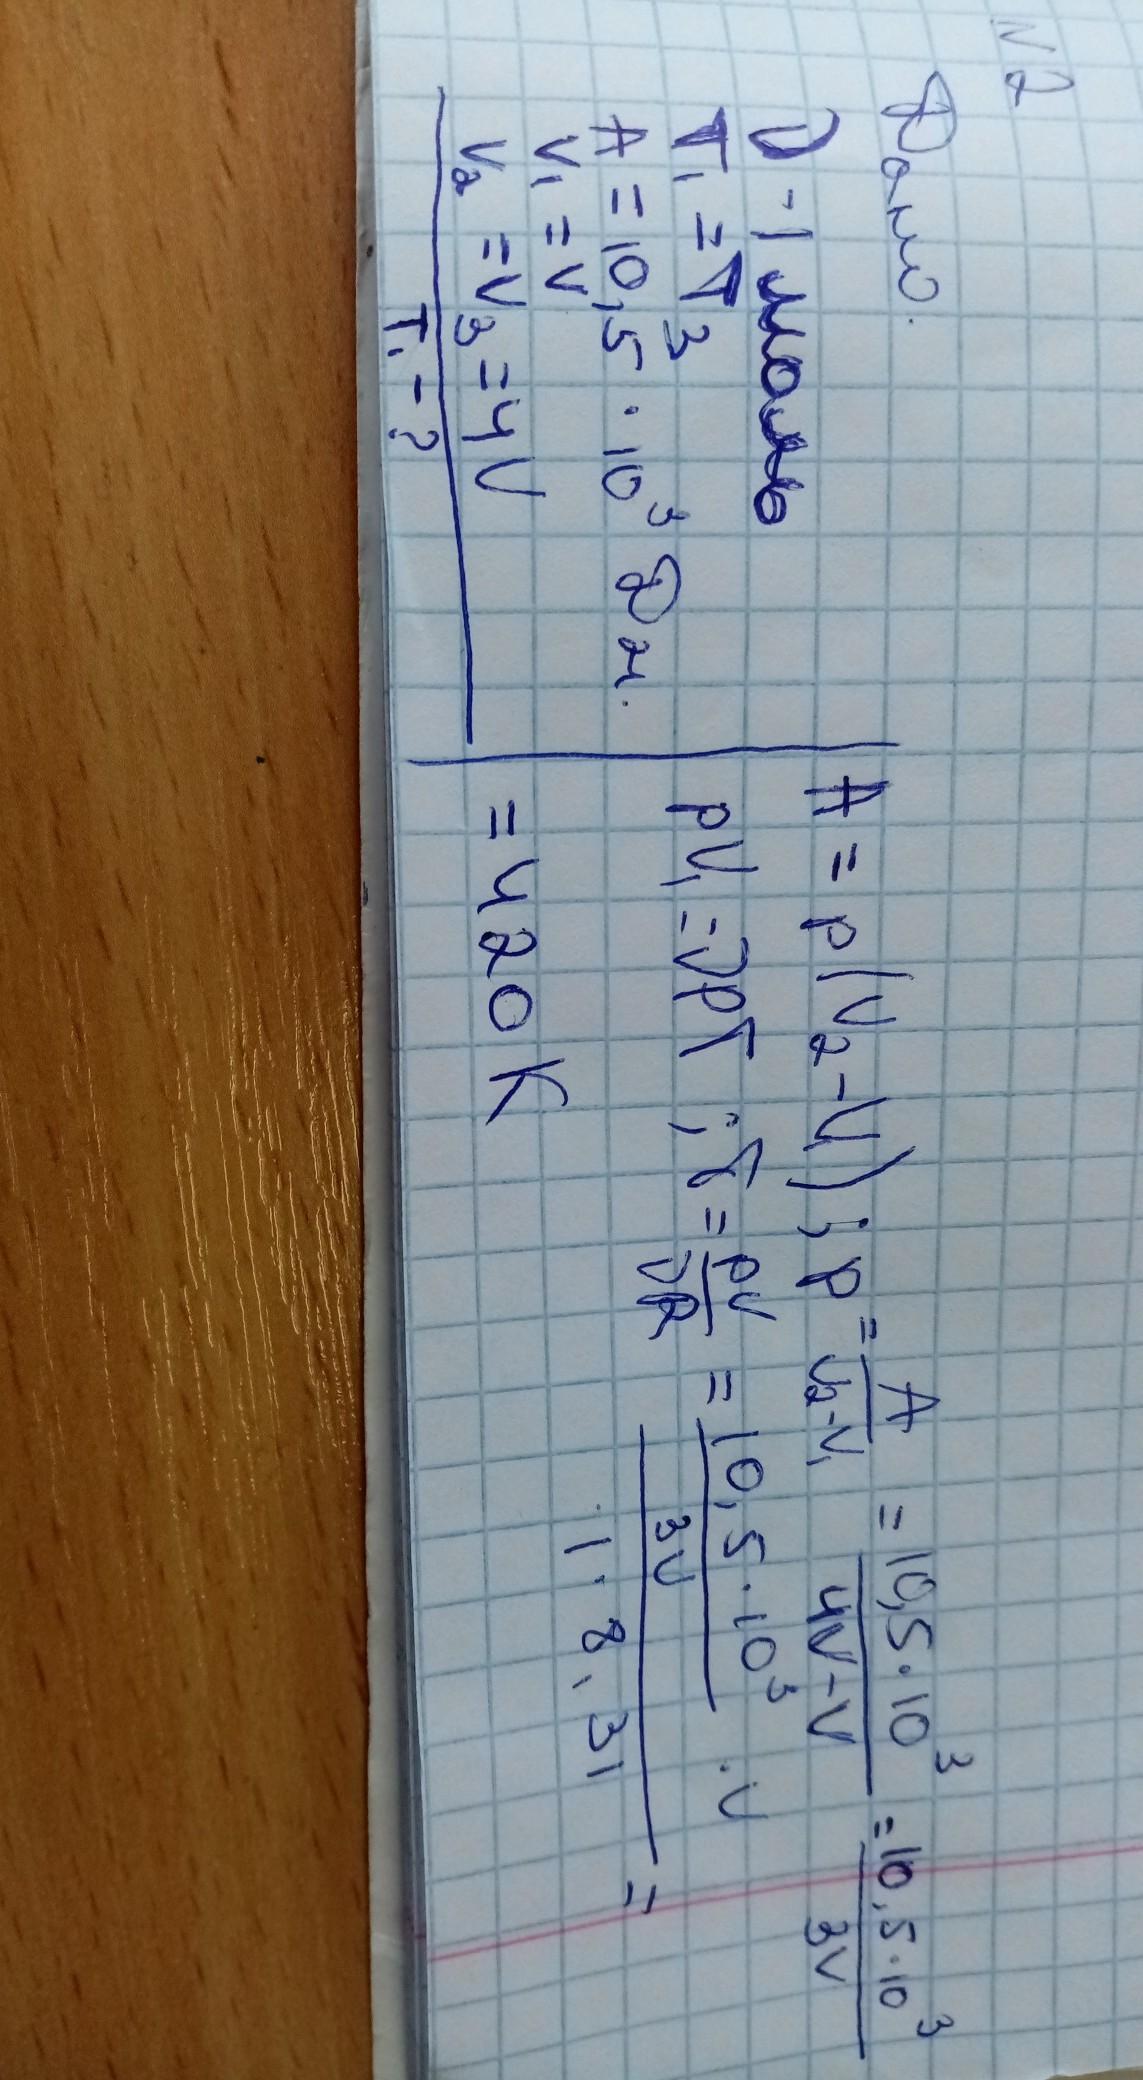 N2
Дано.
ν - 1 моль
T₁ = T₃
A = 10,5 · 10³ Дж.
V₁ = V
V₂ = V₃ = 4V
T₁ - ?
A = p(V₂ - V₁) ; p = A / (V₂ - V₁) = 10,5 · 10³ / (4V - V) = 10,5 · 10³ / 3V
pV₁ = νRT ; T = pV / νR = (10,5 · 10³ / 3V · V) / (1 · 8,31) =
= 420 K